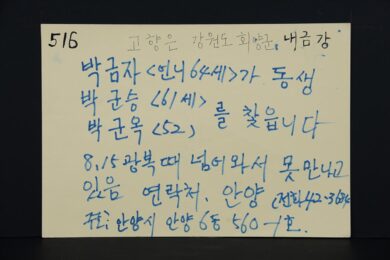 516
고향은 강원도 회양군, 내금강
박금자 <언니 64세>가 동생
박군승 <61세>
박군옥 <52> 를 찾읍니다
8.15 광복때 넘어와서 못 만나고
있음 연락처, 안양 (전화 42-3634
주소: 안양시 안양6동 560-1호.